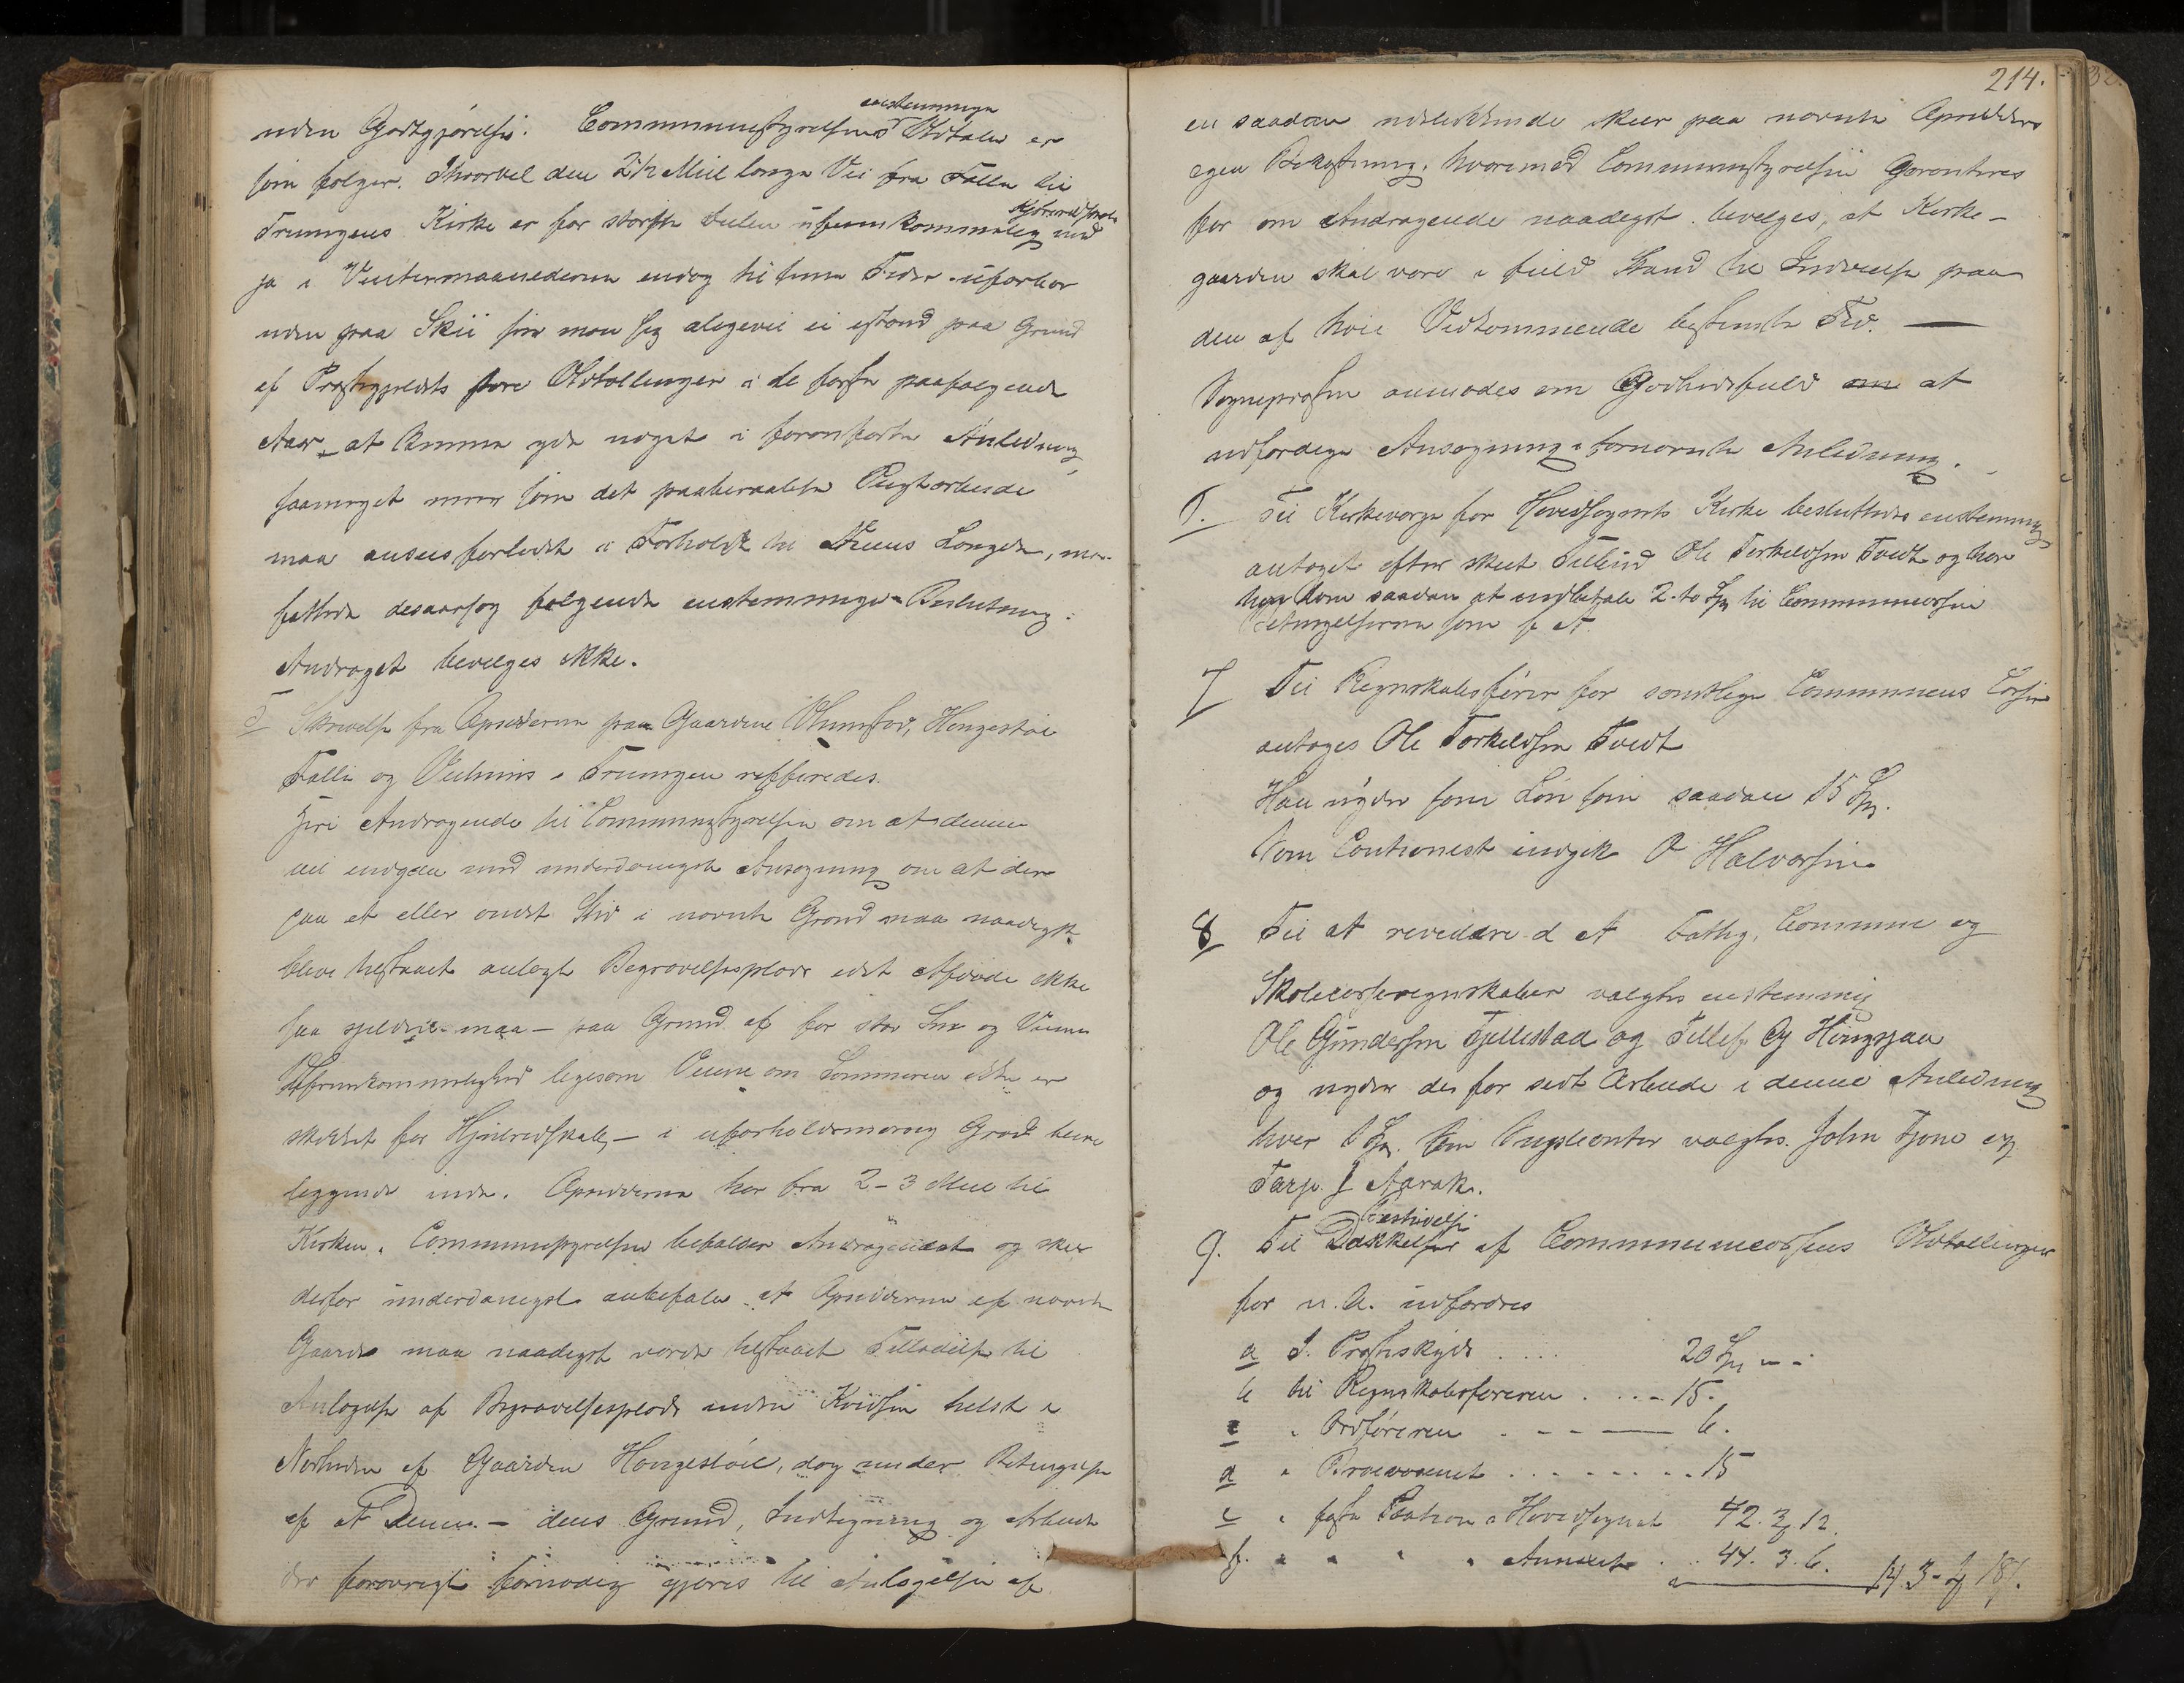 uden Godtgjørelse. Communestyrelsens enstemmige Udtalelse er
som følger. Ihvorvel den 2½ Miil lange Vei fra Falle til
Trungens Kirke er for største Delen ufremkommelig med Hjulredskab
ja i Vintermaanederne endog til sine Tider uførbar
uden paa Skii ser man sig alligevel ei istand paa Grund
af Præstegjeldets store Udtællinger i de første paafølgende
Aar at kunne yde noget i foranførte Anledning,
saameget mere som det paaberaabte Pligtarbeide
maa ansees forledet i Forhold til Veiens Længde,
fattede desaarsag følgende enstemmige Beslutning:
Andraget bevilges ikke.
5 Skrivelse fra Opsidderne paa Gaardene Hongestøil
Falle og i Trungen refereredes.
Andragende til Communestyrelsen om at denne
vil indgaa med underdanigst Ansøgning om at der
paa et eller andet Sted i nævnte Grænd maa naadigst
blive tilstaaet anlagt Begravelsesplads idet Afdøde ikke
saa sjelden maa – paa Grund af for stor Sne og Veiens
Ufremkommelighed ligesom Veiene om Sommeren ikke er
skikket for Hjulredskab, – i uforholdsmæssig Grad blive
liggende inde. Opsidderne har fra 2–3 Mile til
Kirken. Communestyrelsen bifalder Andragendet og skal
derfor underdanigst anbefale at Opsidderne af nævnte
Gaarde maa naadigst vorde tilstaaet Tilladelse til
Anlægelse af Begravelsesplads inden Kredsen helst i
Nærheden af Gaarden Hongestøil, dog under Betingelse
af at Denne – dens Grund, Indhegning og Arbeide
der forøvrigt fornødig gjøres til Anlægelsen af
214.
en saadan udelukkende skeer paa nævnte Opsidderes
egen Bekostning, hvorimod Communestyrelsen Garanteres
for om Andragende naadigst bevilges, at Kirke-
gaarden skal være i fuld Stand til Indvielse paa
den af høie Vedkommende bestemte Tid. —
Sognepræsten anmodes om Godhedsfuld om at
udfærdige Ansøgning i fornævnte Anledning.
6. Til Kirkeværge for Hovedsognets Kirke besluttedes enstemmig
antaget efter skeet Tilbud Ole Terkeldsen Tvedt og har
han som saadan at indbetale 2 to Spd til Communecassen
Betingelserne som f A.
7 Til Regnskabsfører for samtlige Communens Casser
antages Ole Torkeldsen Tvedt
Han nyder som Løn som saadan 15 Spd.
Som Cautionist indgik O Halvorsen
8 Til at revidere d A Fattig, Commune og
Skolecasseregnskaber valgtes enstemmig
Ole Gundersen Fjellestad og Tellef Og Hingsjaa
og nyder de for sit Arbeide i denne Anledning
hver 1 Spd. Som Supleanter valgtes John Tjone og
Tarje J Aarak.
9. Til Bestridelse Dækkelser af Communecassens Udtællinger
for n. A. udfordres
a I. Præsteskyds . . . . 20 Spd " "
b til Regnskabsføreren . . . . 15.
c " Ordføreren . - - — 6.
d " Brævæsenet . . . . . . . . 15
e " faste Station i Hovedsognet 42. 3. 12.
f. " " " " Annexet . . 44. 3. 6.
143 - 1 18/.